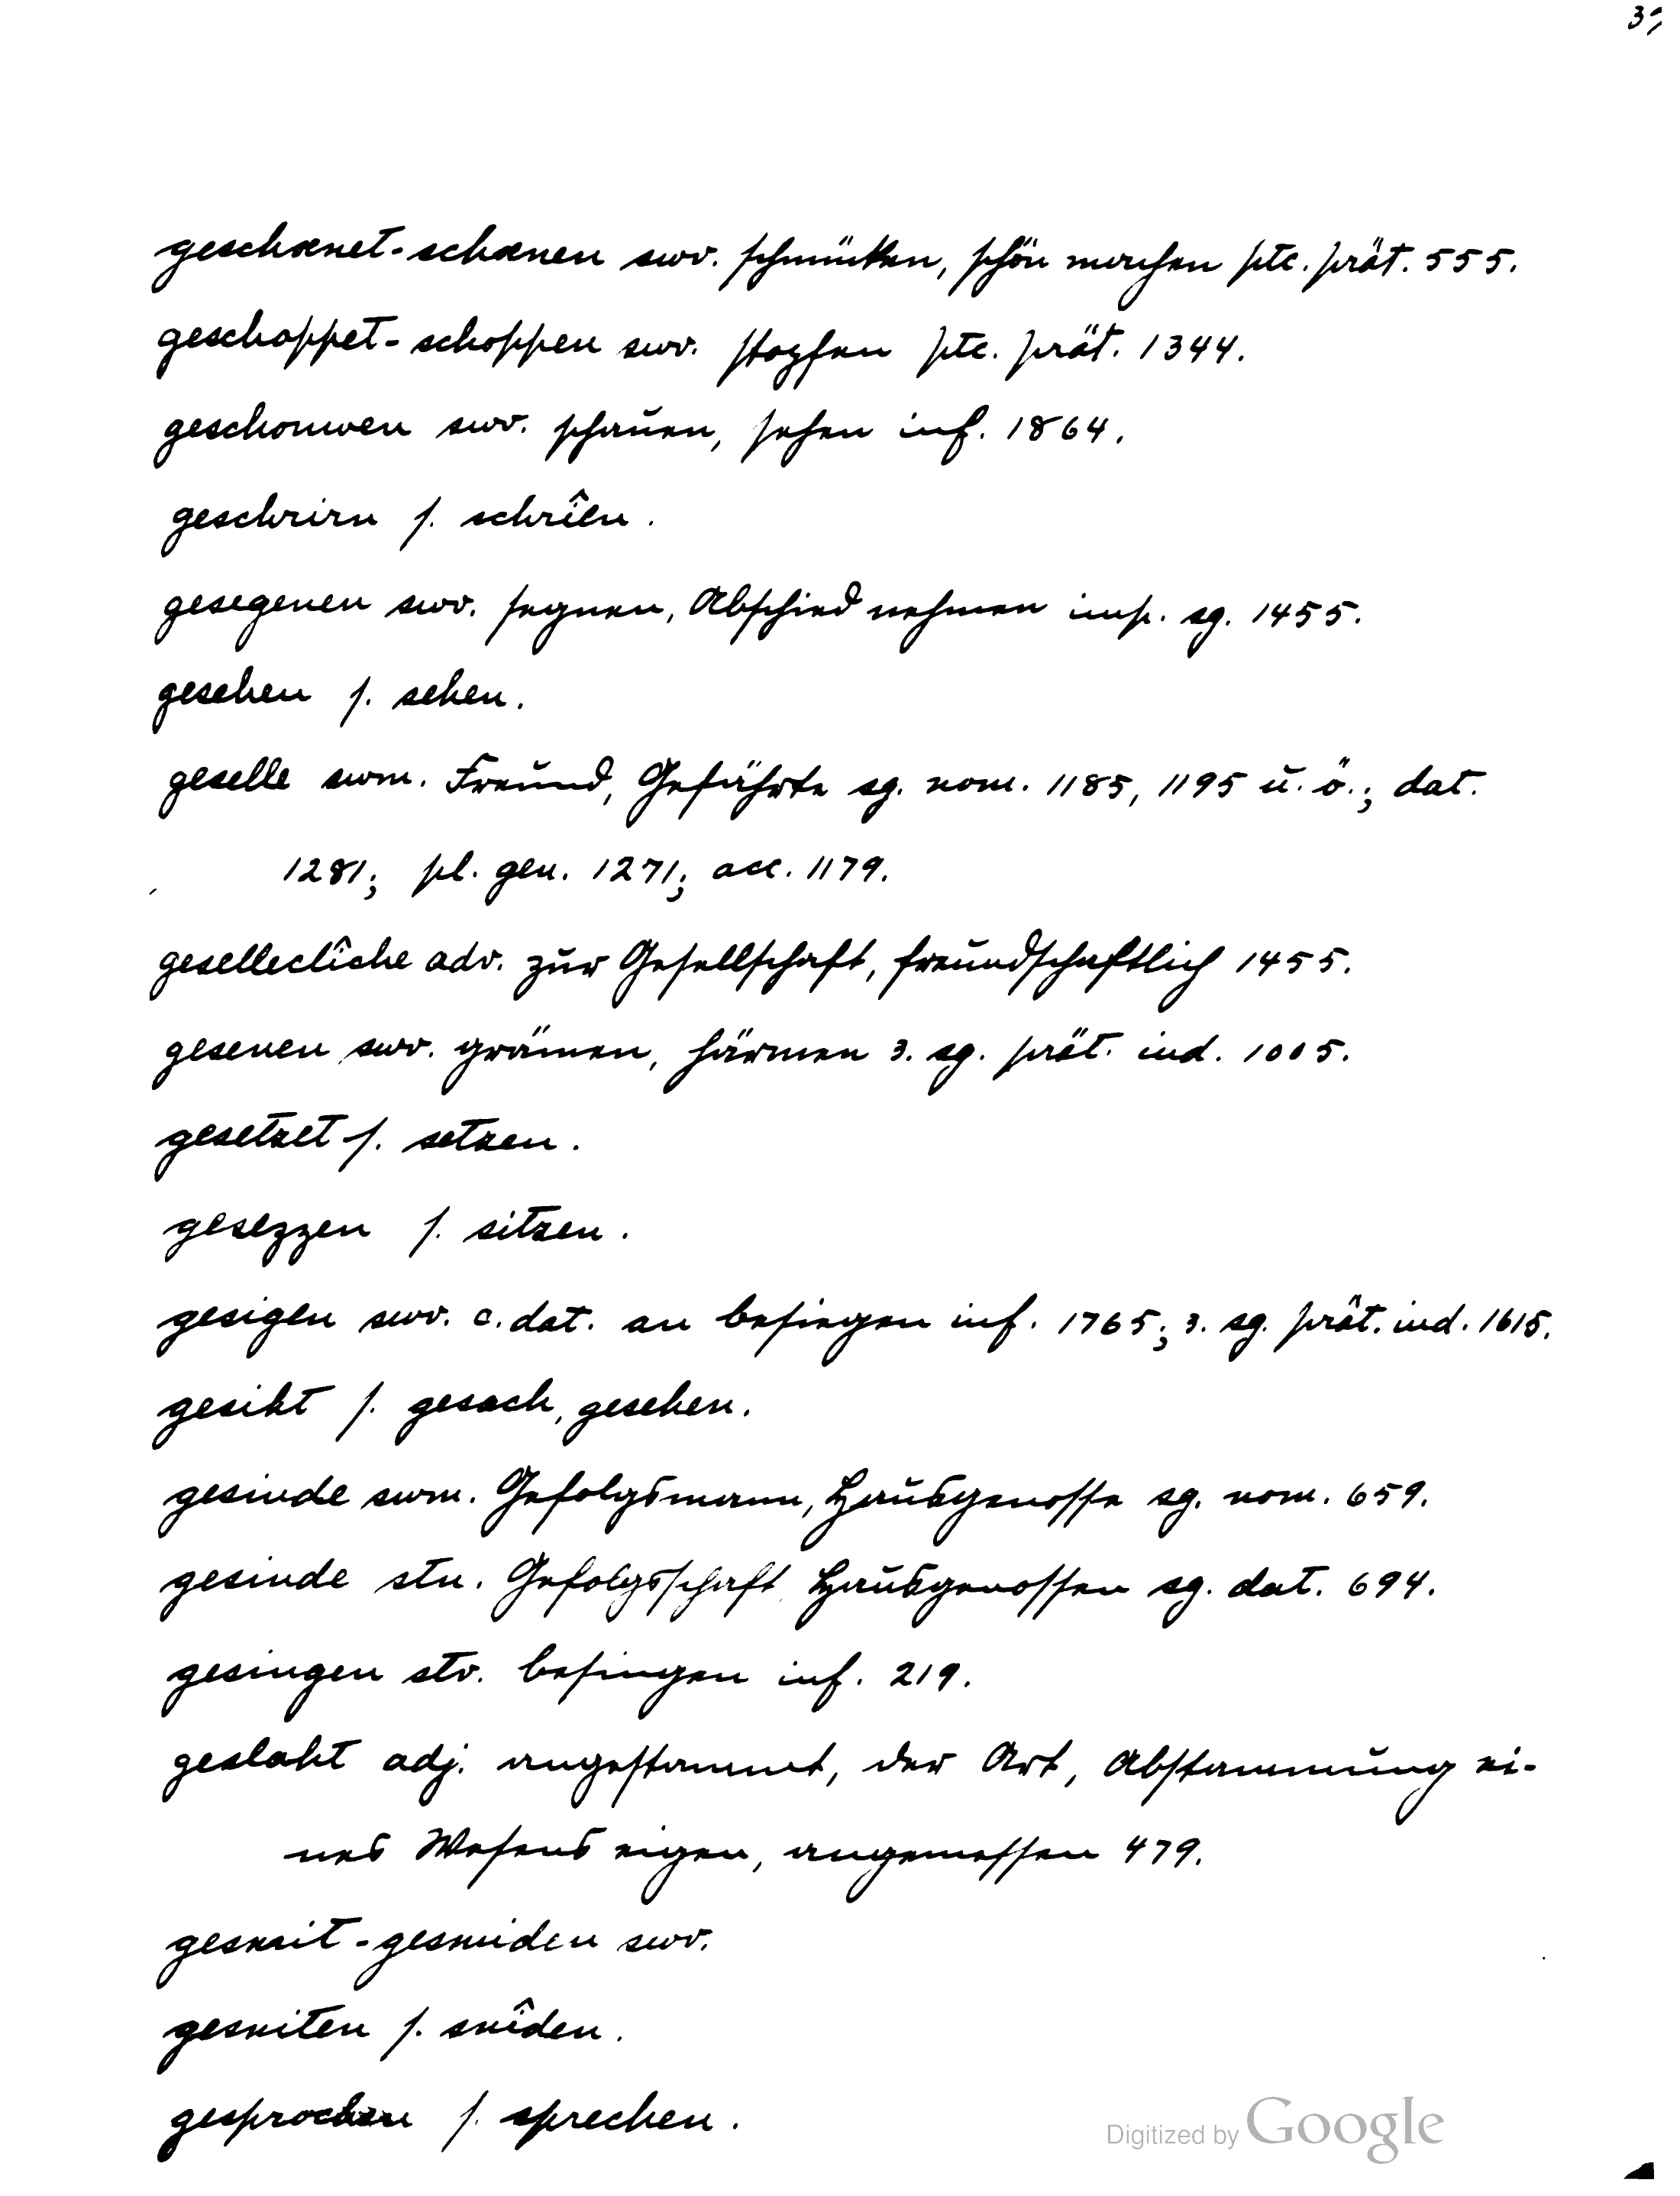 geschœnet - schœnen swv. schmücken, schön machen ptc. prät. 555.
geschoppet - schoppen swv. stopfen ptc. prät. 1344.
geschouwen swv. schauen, sehen inf. 1864.
geschrirn s. schrîen.
gesegenen swv. segnen, Abschied nehmen imp. sg. 1455.
gesehen s. sehen.
geselle swm. Freund, Gefährte sg. nom. 1185, 1195 u. ö.; dat.
1281; pl. gen. 1271; acc. 1179.
geselleclîche adv. zur Gesellschaft, freundschaftlich 1455.
gesenen swv. grämen, härmen 3. sg. prät. ind. 1005.
gesetzet s. setzen.
gesezzen s. sitzen.
gesigen swv. c. dat. an besiegen inf. 1765; 3. sg. prät. ind. 1615.
gesiht s. gesach, gesehen.
gesinde swm. Gefolgsmann, Hausgenosse sg. nom. 659.
gesinde stn. Gefolgsschaft, Hausgenossen sg. dat. 694.
gesingen stv. besingen inf. 219.
geslaht adj. angestammt, der Art, Abstammung ei-
nes Wesens eigen, angemessen 479.
gesmit - gesmiden swv.
gesniten s. snîden.
gesprochen s. sprechen.
Digitized by Google